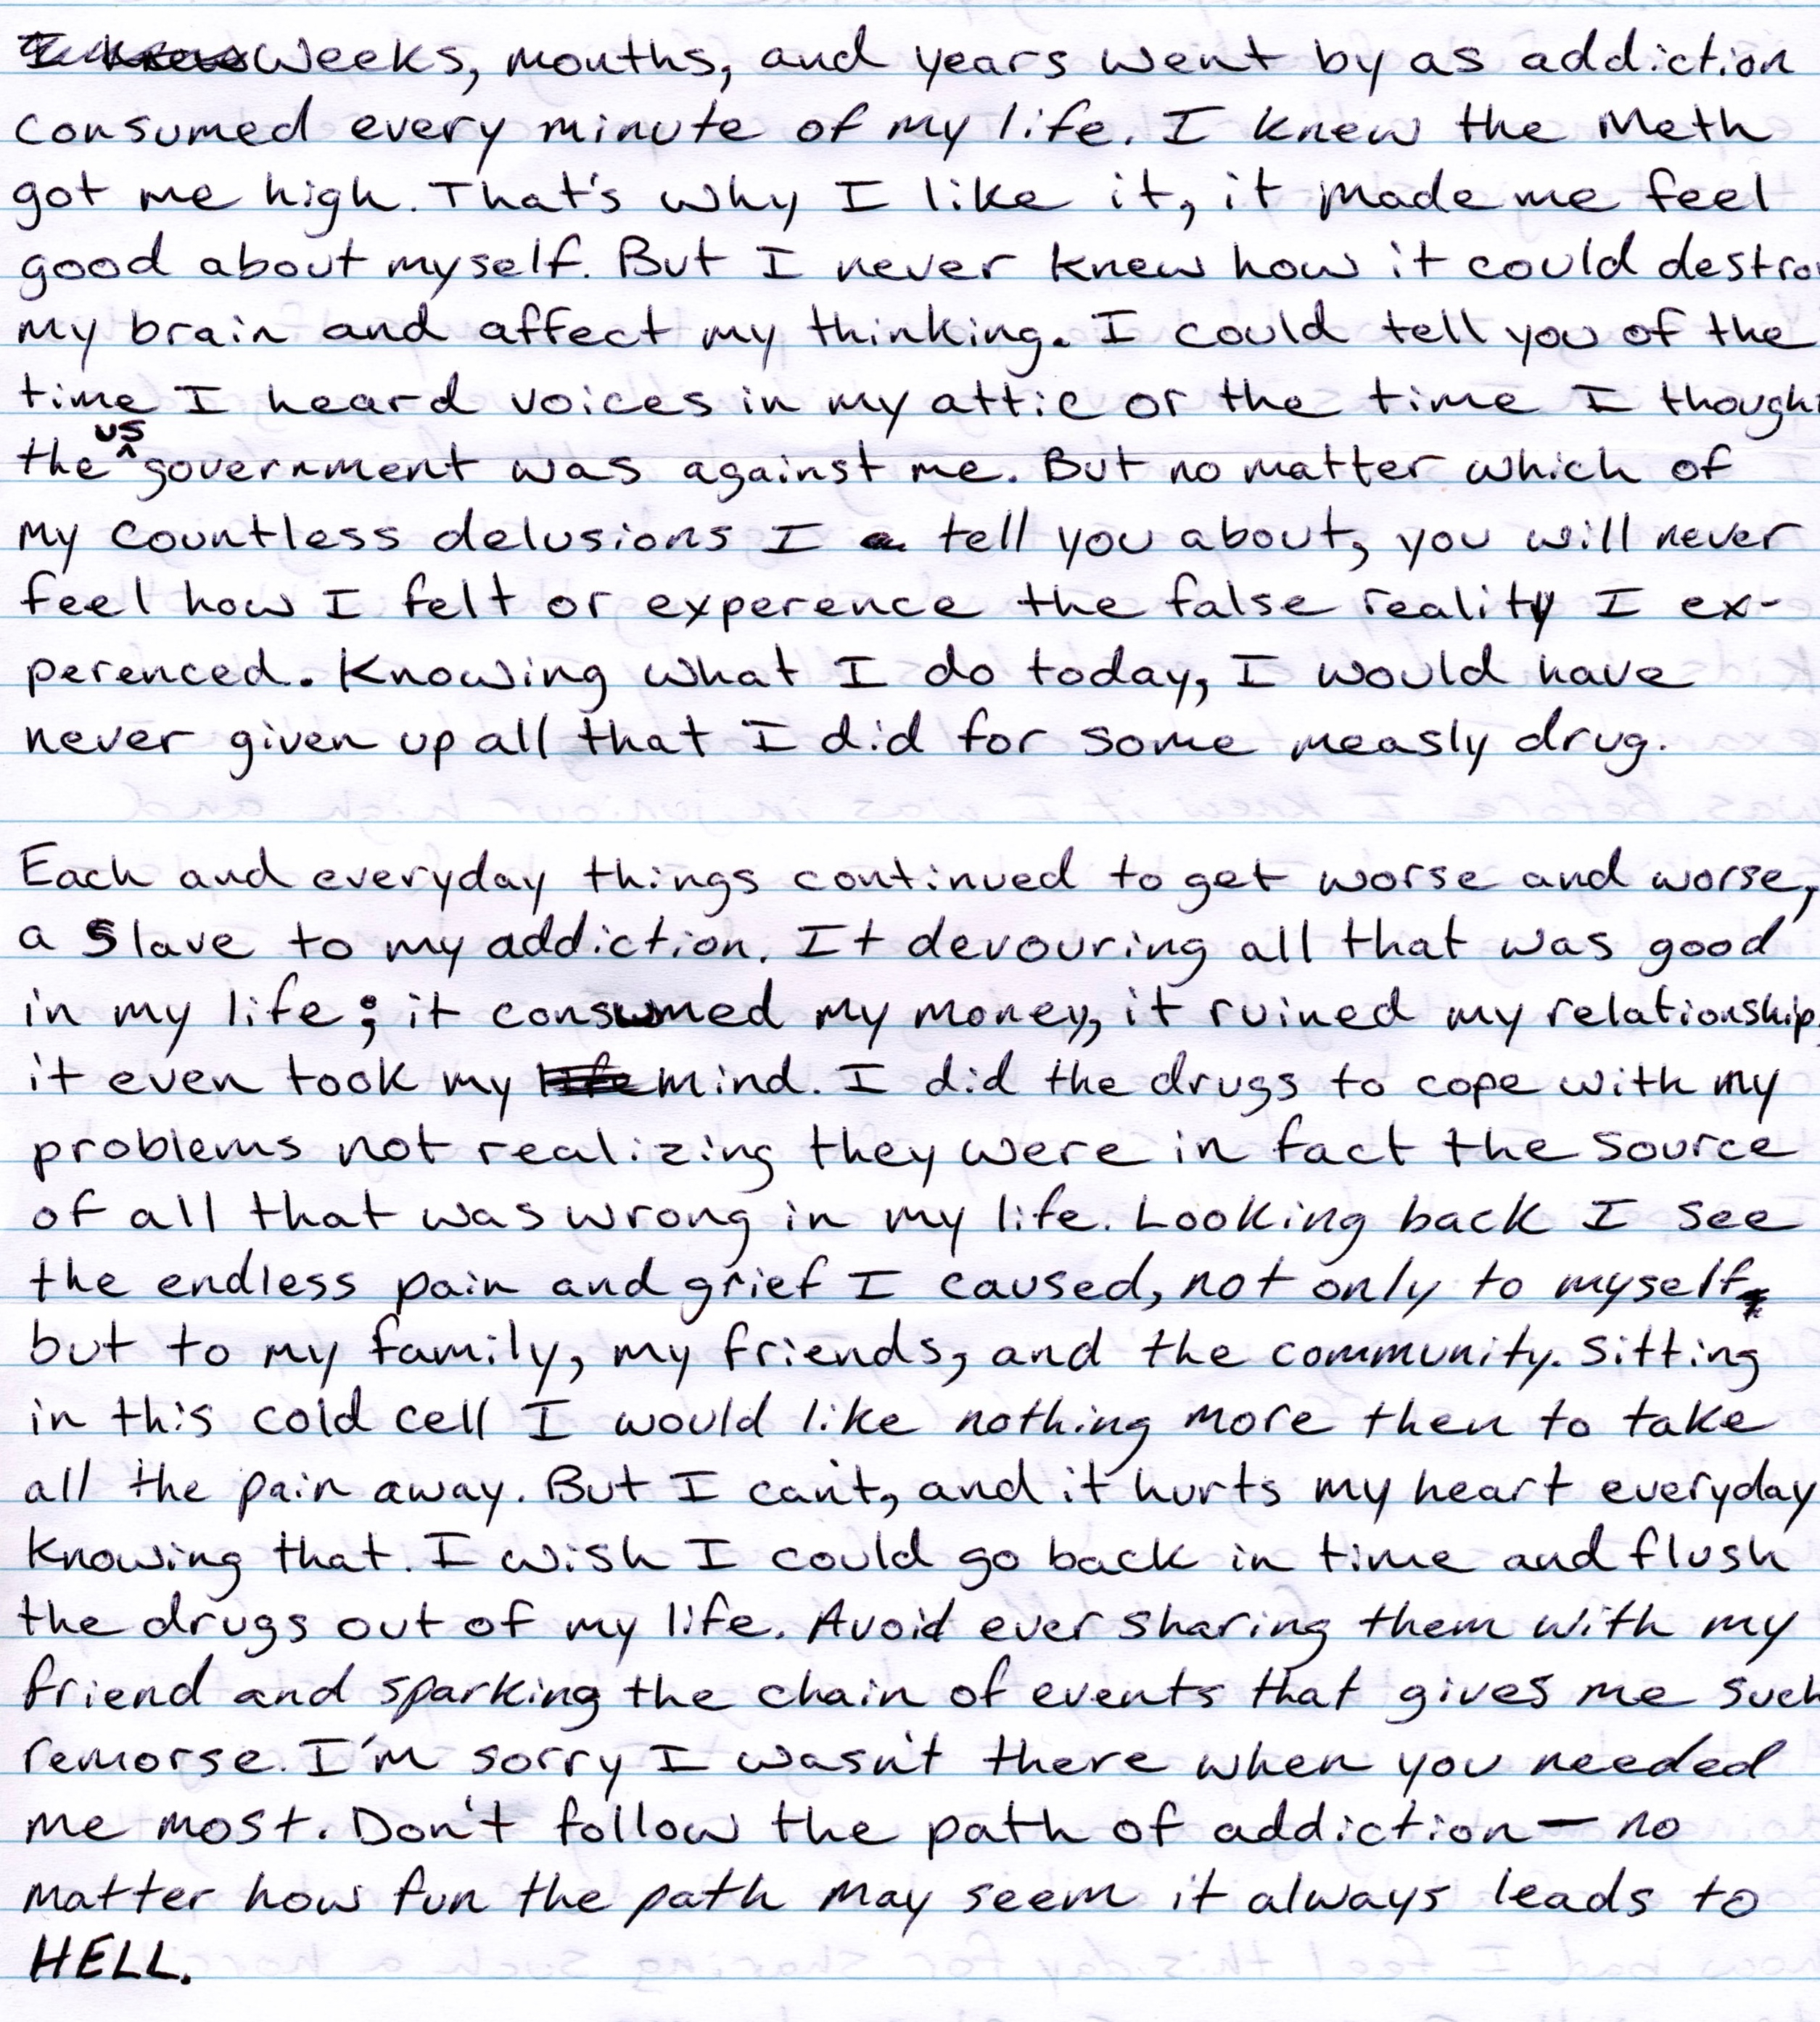 I knew Weeks, months, and years went by as addiction
consumed every minute of my life. I knew the Meth
got me high. That's why I like it, it made me feel
good about myself. But I never knew how it could destro
my brain and affect my thinking. I could tell you of the
time I heard voices in my attic or the time I though
the ^US government was against me. But no matter which of
my countless delusions I a tell you about, you will never
feel how I felt or experence the false reality I ex-
perenced. Knowing what I do today, I would have
never given up all that I did for some measly drug.
Each and everyday things continued to get worse and worse,
a slave to my addiction. It devouring all that was good
in my life; it consumed my money, it ruined my relationship,
it even took my life mind. I did the drugs to cope with my
problems not realizing they were in fact the source
of all that was wrong in my life. Looking back I see
the endless pain and grief I caused, not only to myself,
but to my family, my friends, and the community. Sitting
in this cold cell I would like nothing more then to take
all the pain away. But I can't, and it hurts my heart everyday
knowing that. I wish I could go back in time and flush
the drugs out of my life. Avoid ever sharing them with my
friend and sparking the chain of events that gives me such
remorse. I'm sorry I wasn't there when you needed
me most. Don't follow the path of addiction — no
matter how fun the path may seem it always leads to
HELL.